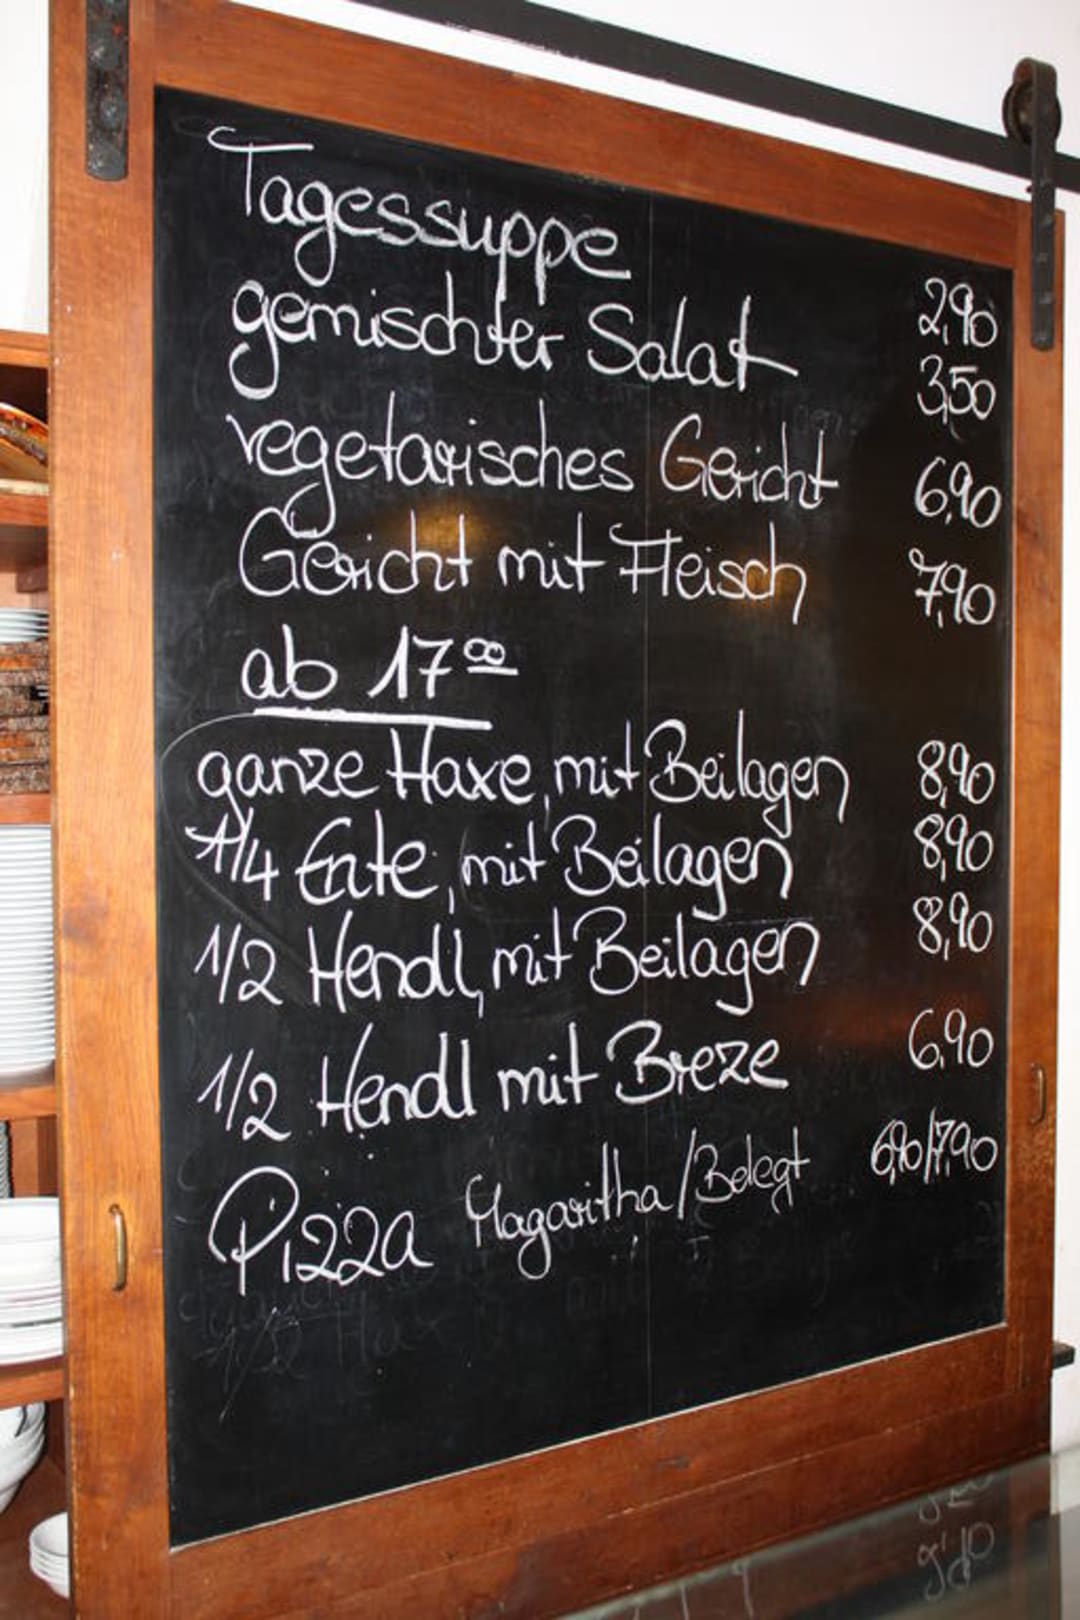 Tagessuppe 2,90
gemischter Salat 3,50
vegetarisches Gericht 6,90
Gericht mit Fleisch 7,90
ab 17⁰⁰
ganze Haxe, mit Beilagen 8,90
1/4 Ente, mit Beilagen 8,90
1/2 Hendl, mit Beilagen 8,90
1/2 Hendl mit Breze 6,90
Pizza Magaritha/Belegt 6,90/7,90